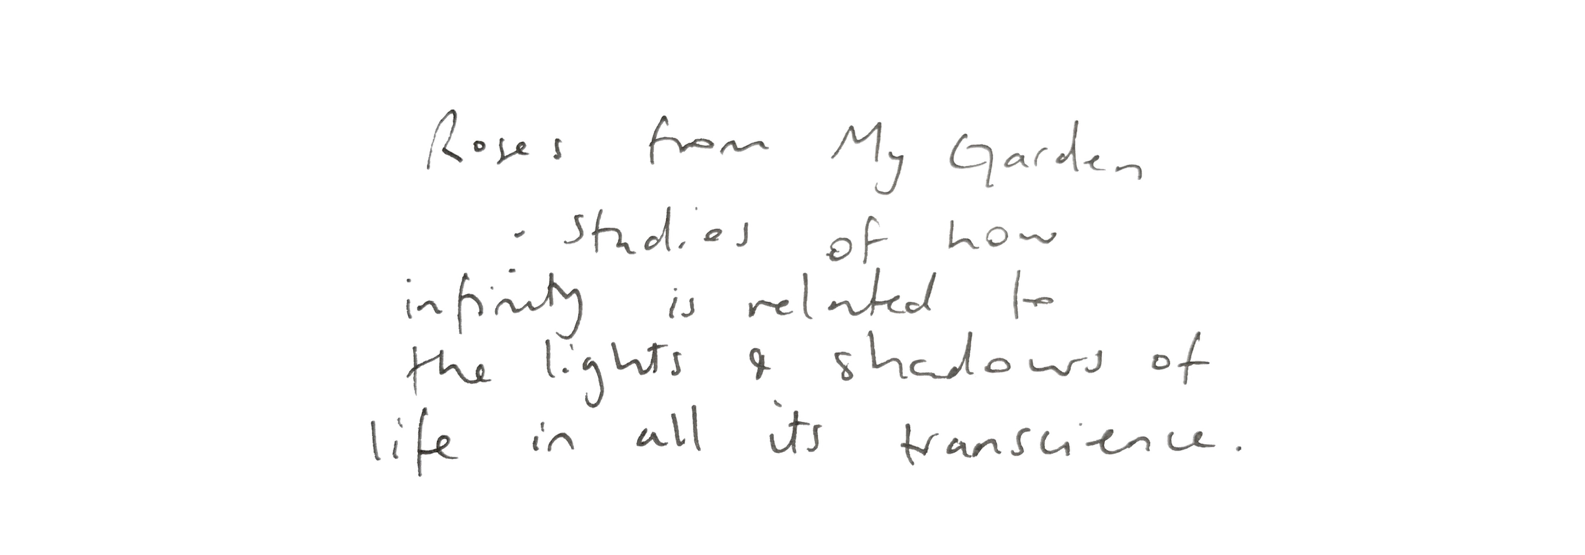 Roses from My Garden
- studies of how
infinity is related to
the lights & shadows of
life in all its transcience.